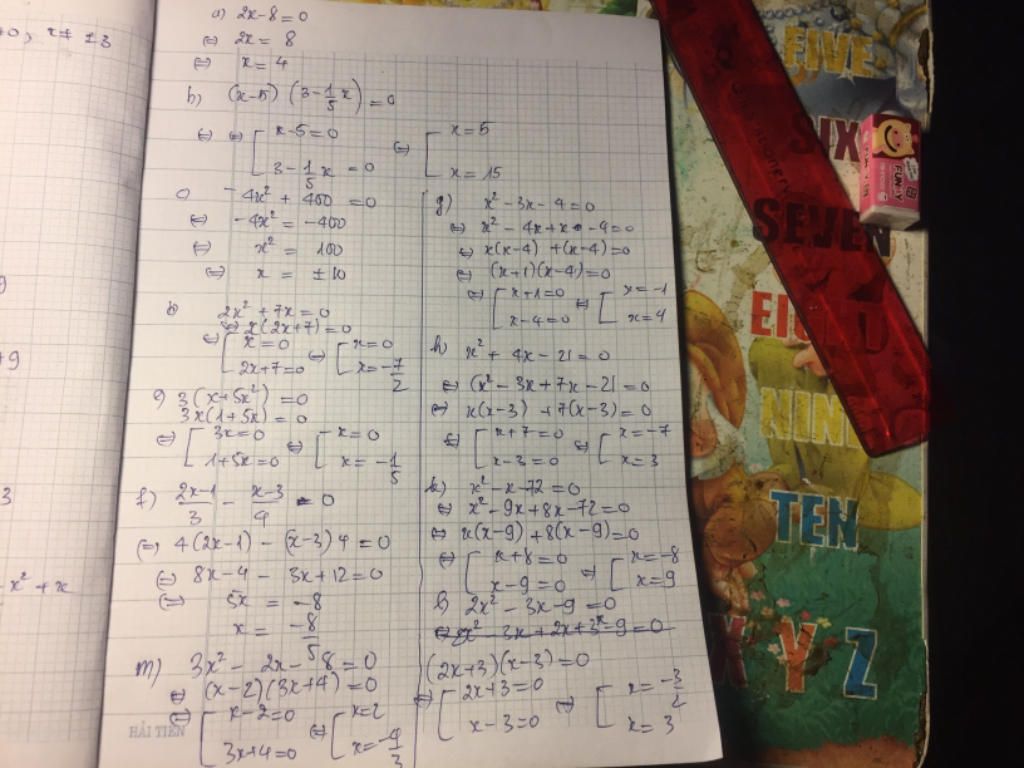 +0, x≠ ±3
+9
3
- x² + x
a) 2x-8=0
⇔ 2x = 8
⇔ x = 4
b) (x-5) (3-1/5 x) = 0
⇔ ⇔ [ x-5=0 ⇔ [ x=5
3-1/5 x = 0 x = 15
c) -4x² + 400 = 0
⇔ -4x² = -400
⇔ x² = 100
⇔ x = ±10
2x² + 7x = 0
⇔ x(2x+7)=0
⇔ [ x=0 ⇔ [ x=0
2x+7=0 x=-7/2
e) 3(x+5x²) = 0
3x(1+5x) = 0
⇔ [ 3x=0 ⇔ [ x=0
1+5x=0 x = -1/5
f) 2x-1/3 - x-3/4 = 0
⇔ 4(2x-1) - (x-3)4 = 0
⇔ 8x-4 - 3x+12=0
⇔ 5x = -8
x = -8/5
m) 3x² - 2x - 8 = 0
⇔ (x-2)(3x+4)=0
⇔ [ x-2=0 ⇔ [ x=2
3x+4=0 x=-4/3
g) x² -3x -4=0
⇔ x² - 4x+x -4=0
⇔ x(x-4) +(x-4)=0
⇔ (x+1)(x-4)=0
⇔ [ x+1=0 ⇔ [ x=-1
x-4=0 x=4
h) x² + 4x - 21 = 0
⇔ (x² - 3x + 7x - 21 = 0
⇔ x(x-3) +7(x-3)=0
⇔ [ x+7=0 ⇔ [ x=-7
x-3=0 x=3
k) x² -x-72=0
⇔ x² -9x+8x-72=0
⇔ x(x-9) +8(x-9)=0
⇔ [ x+8=0 ⇔ [ x=-8
x-9=0 x=9
l) 2x² - 3x-9=0
(2x+3)(x-3)=0
⇔ [ 2x+3=0 ⇔ [ x=-3/2
x-3=0 x=3
HẢI TIẾN
FIVE
SIX
SEVEN
EIGHT
NINE
TEN
X Y Z
FUNNY